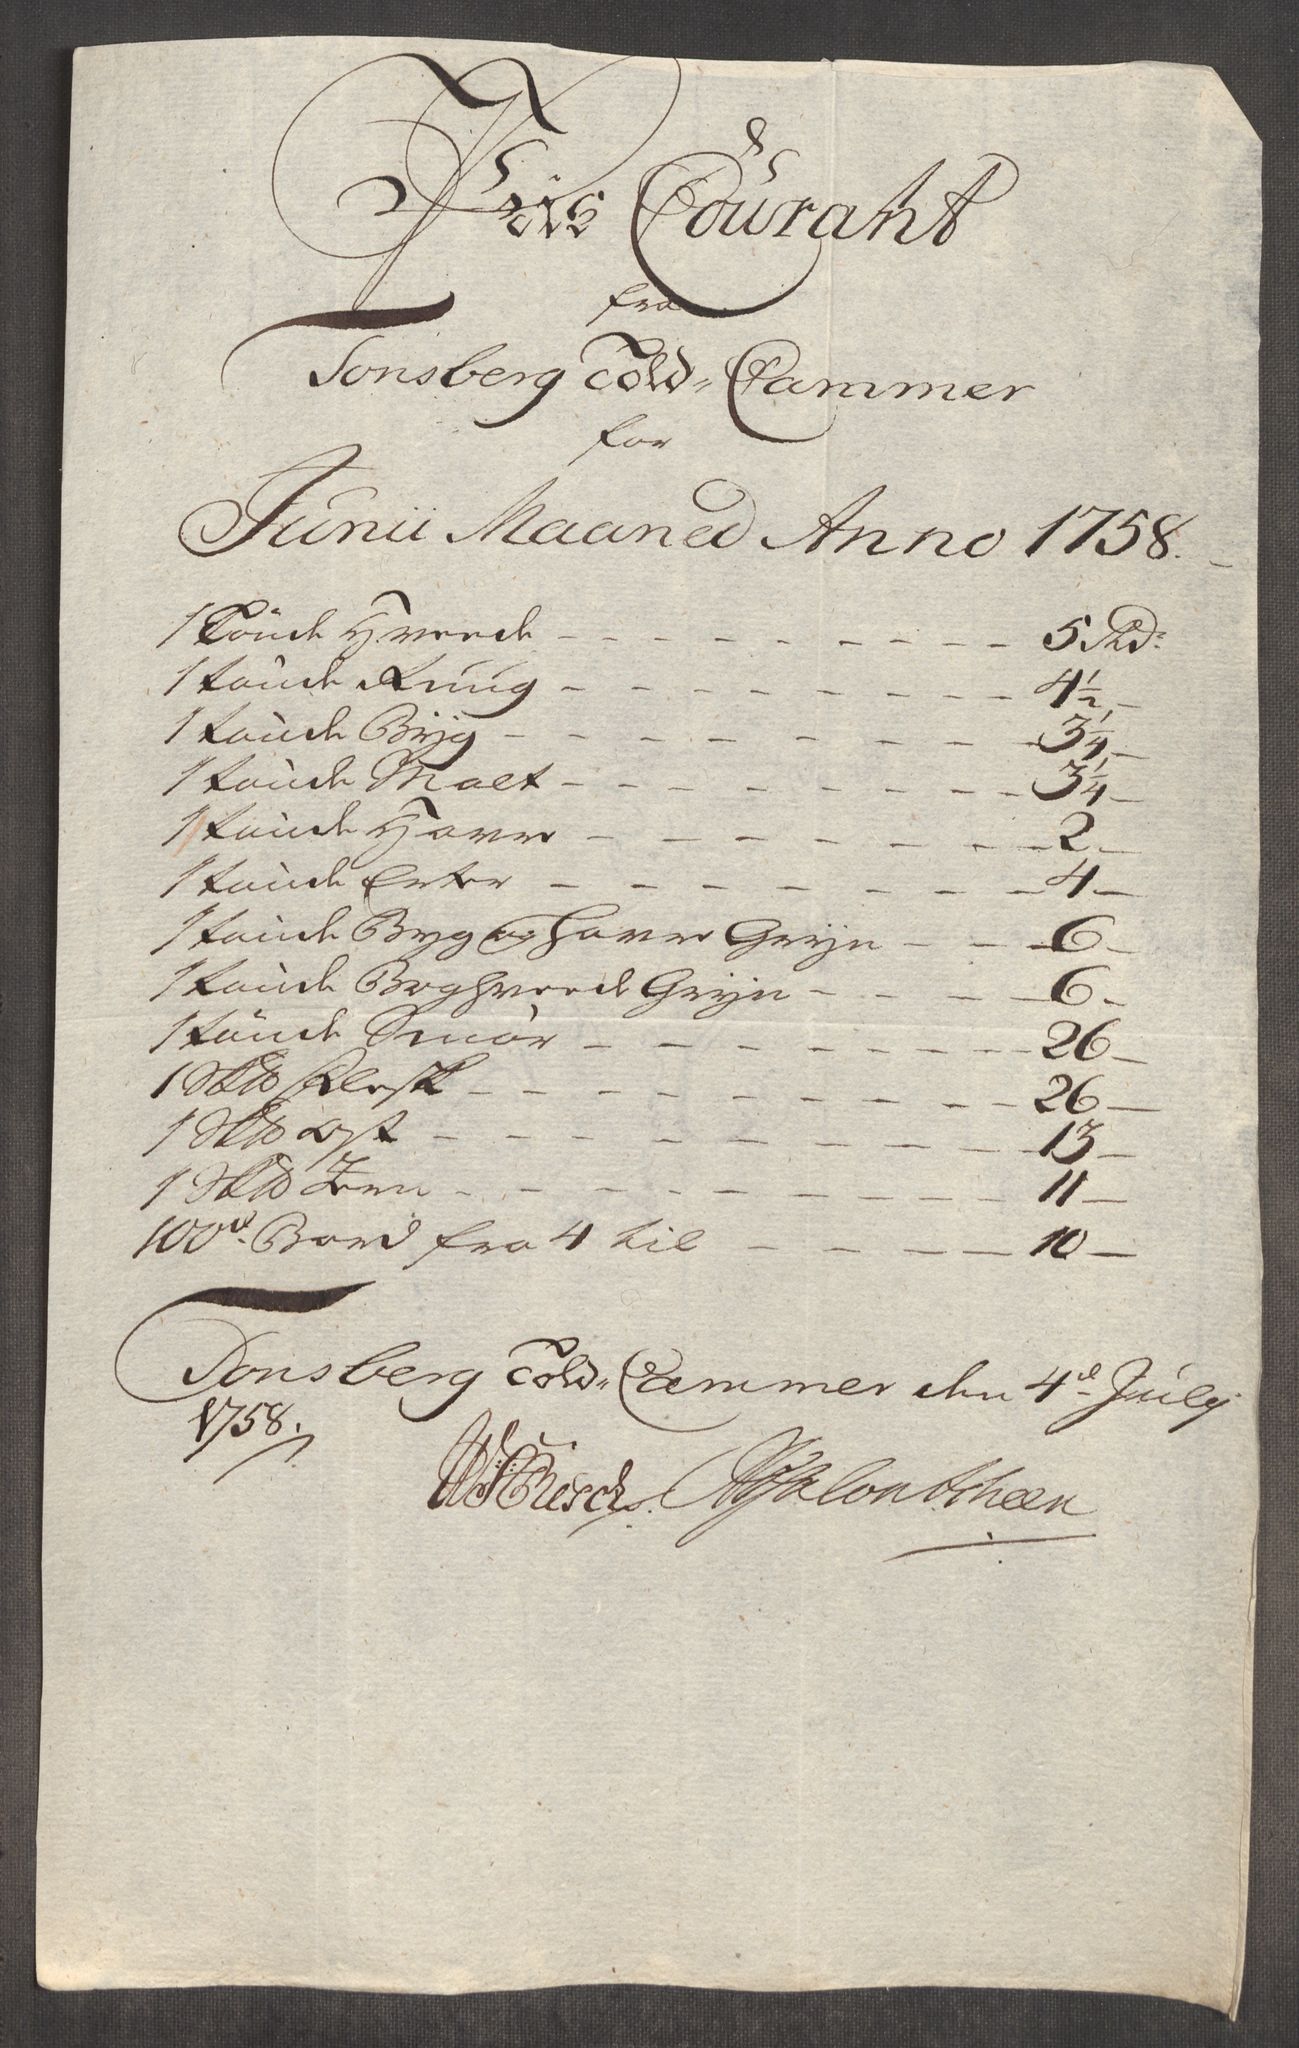 Priis Courant
fra
Tonsberg Told-Cammer
for
Junii Maaned Anno 1758.
1 Tönde Hvede - - - 5 Rd:
1 tönde Rúúg - - - 4 1/2
1 tönde Bÿg - - - 3 1/4
1 tönde Malt - - - 3 1/4
1 tönde Havre - - - 2
1 tönde Erter - - - 4
1 tönde Byg og Havre Grÿn - - - 6
1 tönde Boghvede Grÿn - - - 6
1 tönde Smör - - - 26
1 Sk℔ Flesk - - - 26
1 Sk℔ Ost - - - 13
1 Sk℔ Jern - - - 11
100de Bord fra 4 til - - - 10
Tonsberg Told-Cammer den 4de Júlÿ
1758.